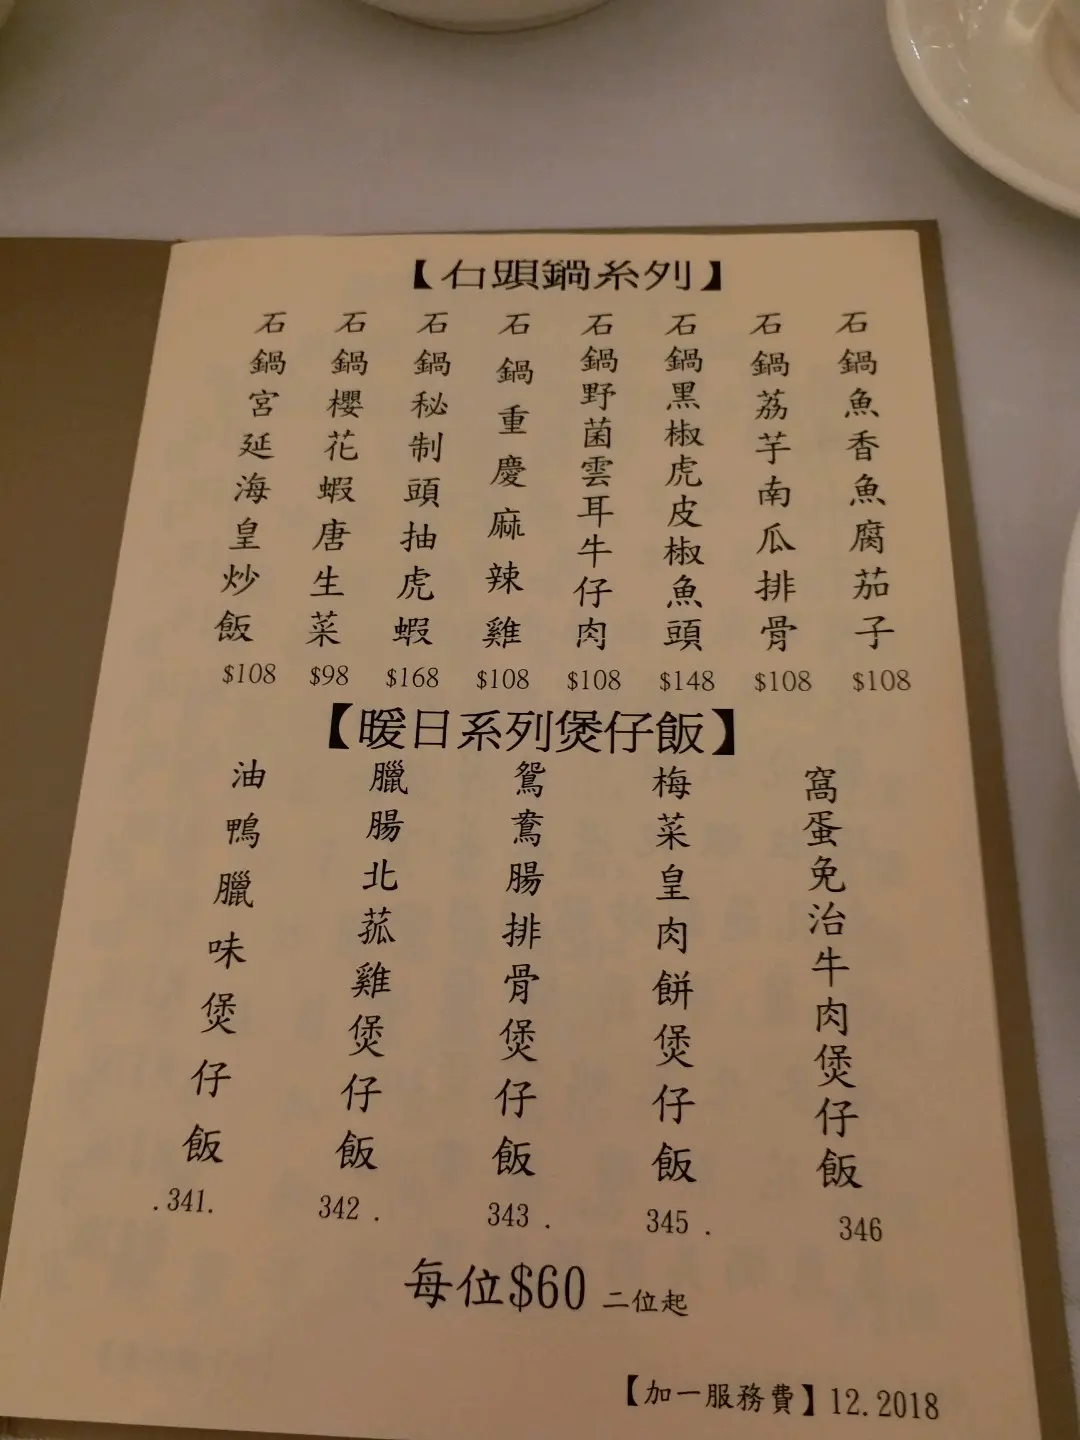 【石頭鍋系列】
石鍋魚香魚腐茄子
$108
石鍋荔芋南瓜排骨
$108
石鍋黑椒虎皮椒魚頭
$148
石鍋野菌雲耳牛仔肉
$108
石鍋重慶麻辣雞
$108
石鍋秘制頭抽虎蝦
$168
石鍋櫻花蝦唐生菜
$98
石鍋宮延海皇炒飯
$108
【暖日系列煲仔飯】
窩蛋免治牛肉煲仔飯
346
梅菜皇肉餅煲仔飯
345 .
鴛鴦腸排骨煲仔飯
343 .
臘腸北菰雞煲仔飯
342 .
油鴨臘味煲仔飯
.341.
每位$60 二位起
【加一服務費】12.2018